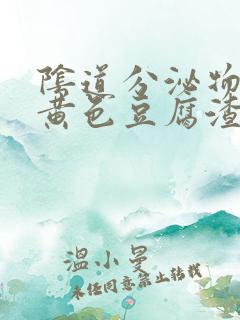 陰道分泌物
黄色豆腐渣
温小曼
未经同意禁止转载